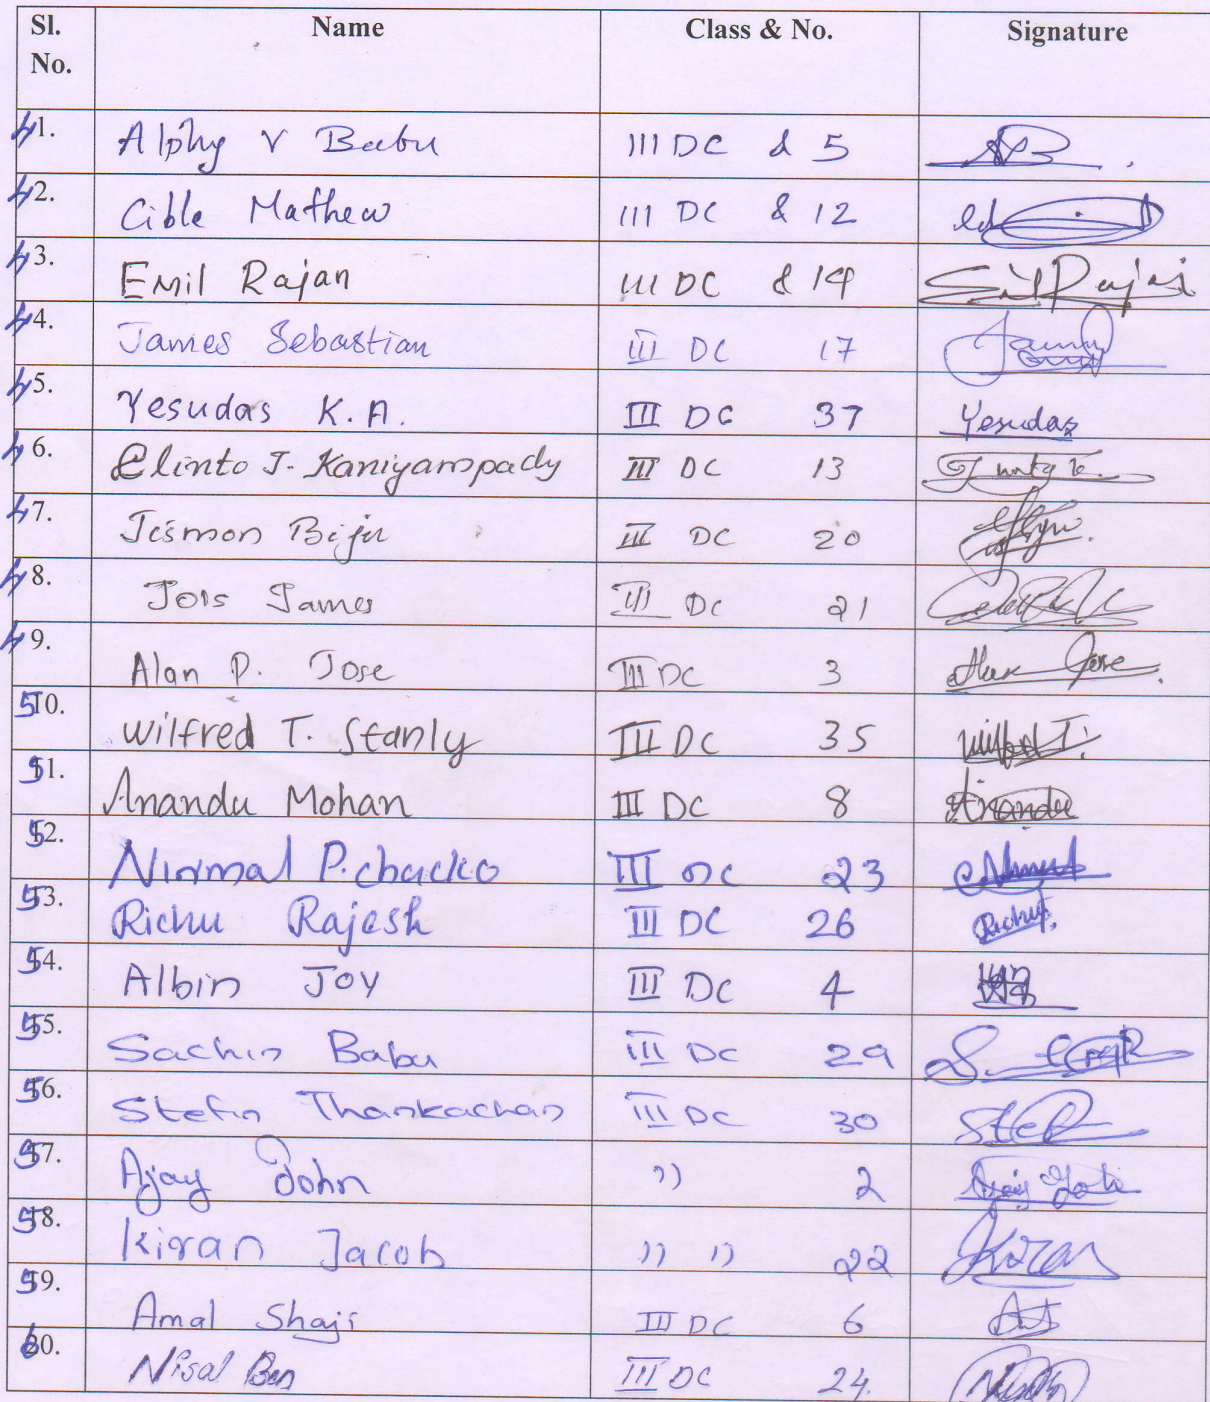 Sl. No. Name Class & No. Signature
41. Alphy V Babu III DC & 5
42. Cible Mathew III DC & 12
43. Emil Rajan III DC & 14 Emil Rajan
44. James Sebastian III DC 17
45. Yesudas K.A. III DC 37 Yesudas
46. Clinto J. Kaniyampady III DC 13
47. Jismon Biju III DC 20
48. Jois James III DC 21
49. Alan P. Jose III DC 3 Alan Jose
50. Wilfred T. Stanly III DC 35
51. Anandu Mohan III DC 8 Anandu
52. Nirmal P. chacko III DC 23
53. Richu Rajesh III DC 26
54. Albin Joy III DC 4
55. Sachin Babu III DC 29
56. Stefin Thankachan III DC 30
57. Ajay John " 2
58. Kiran Jacob " " 22 Kiran
59. Amal Shaji III DC 6
60. Nisal Ben III DC 24